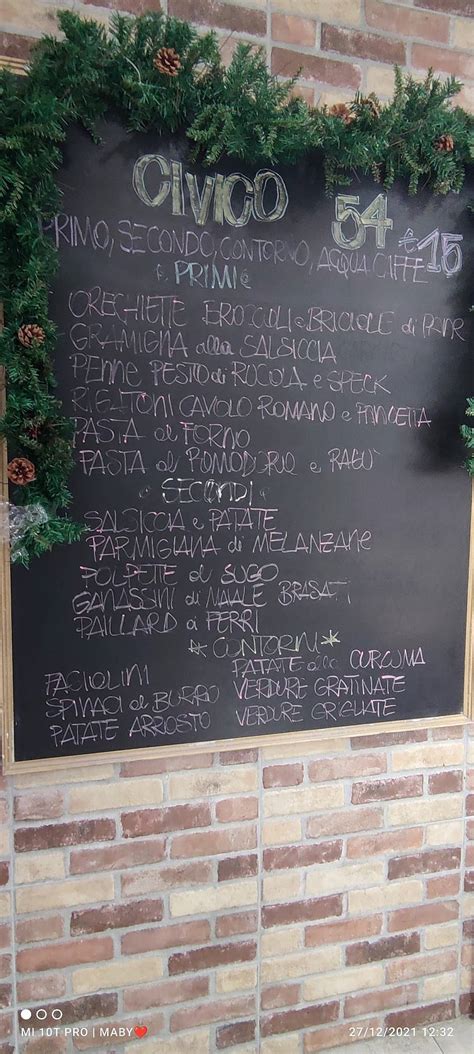 CIVICO 54
PRIMO, SECONDO, CONTORNO, ACQUA CAFFE € 15
PRIMI
ORECHIETTE BROCCOLI e BRICIOLE di PANE
GRAMIGNA alla SALSICCIA
PENNE PESTO di RUCOLA e SPECK
RIGATONI CAVOLO ROMANO e PANCETTA
PASTA al FORNO
PASTA al POMODORO e RAGÙ
SECONDI
SALSICCIA e PATATE
PARMIGIANA di MELANZANE
POLPETTE al SUGO
GANASSINI di MAIALE BRASATI
PAILLARD ai FERRI
CONTORNI
FAGIOLINI
SPINACI al BURRO
PATATE ARROSTO
PATATE alla CURCUMA
VERDURE GRATINATE
VERDURE GRIGLIATE
MI 10T PRO | MABY❤️
27/12/2021 12:32